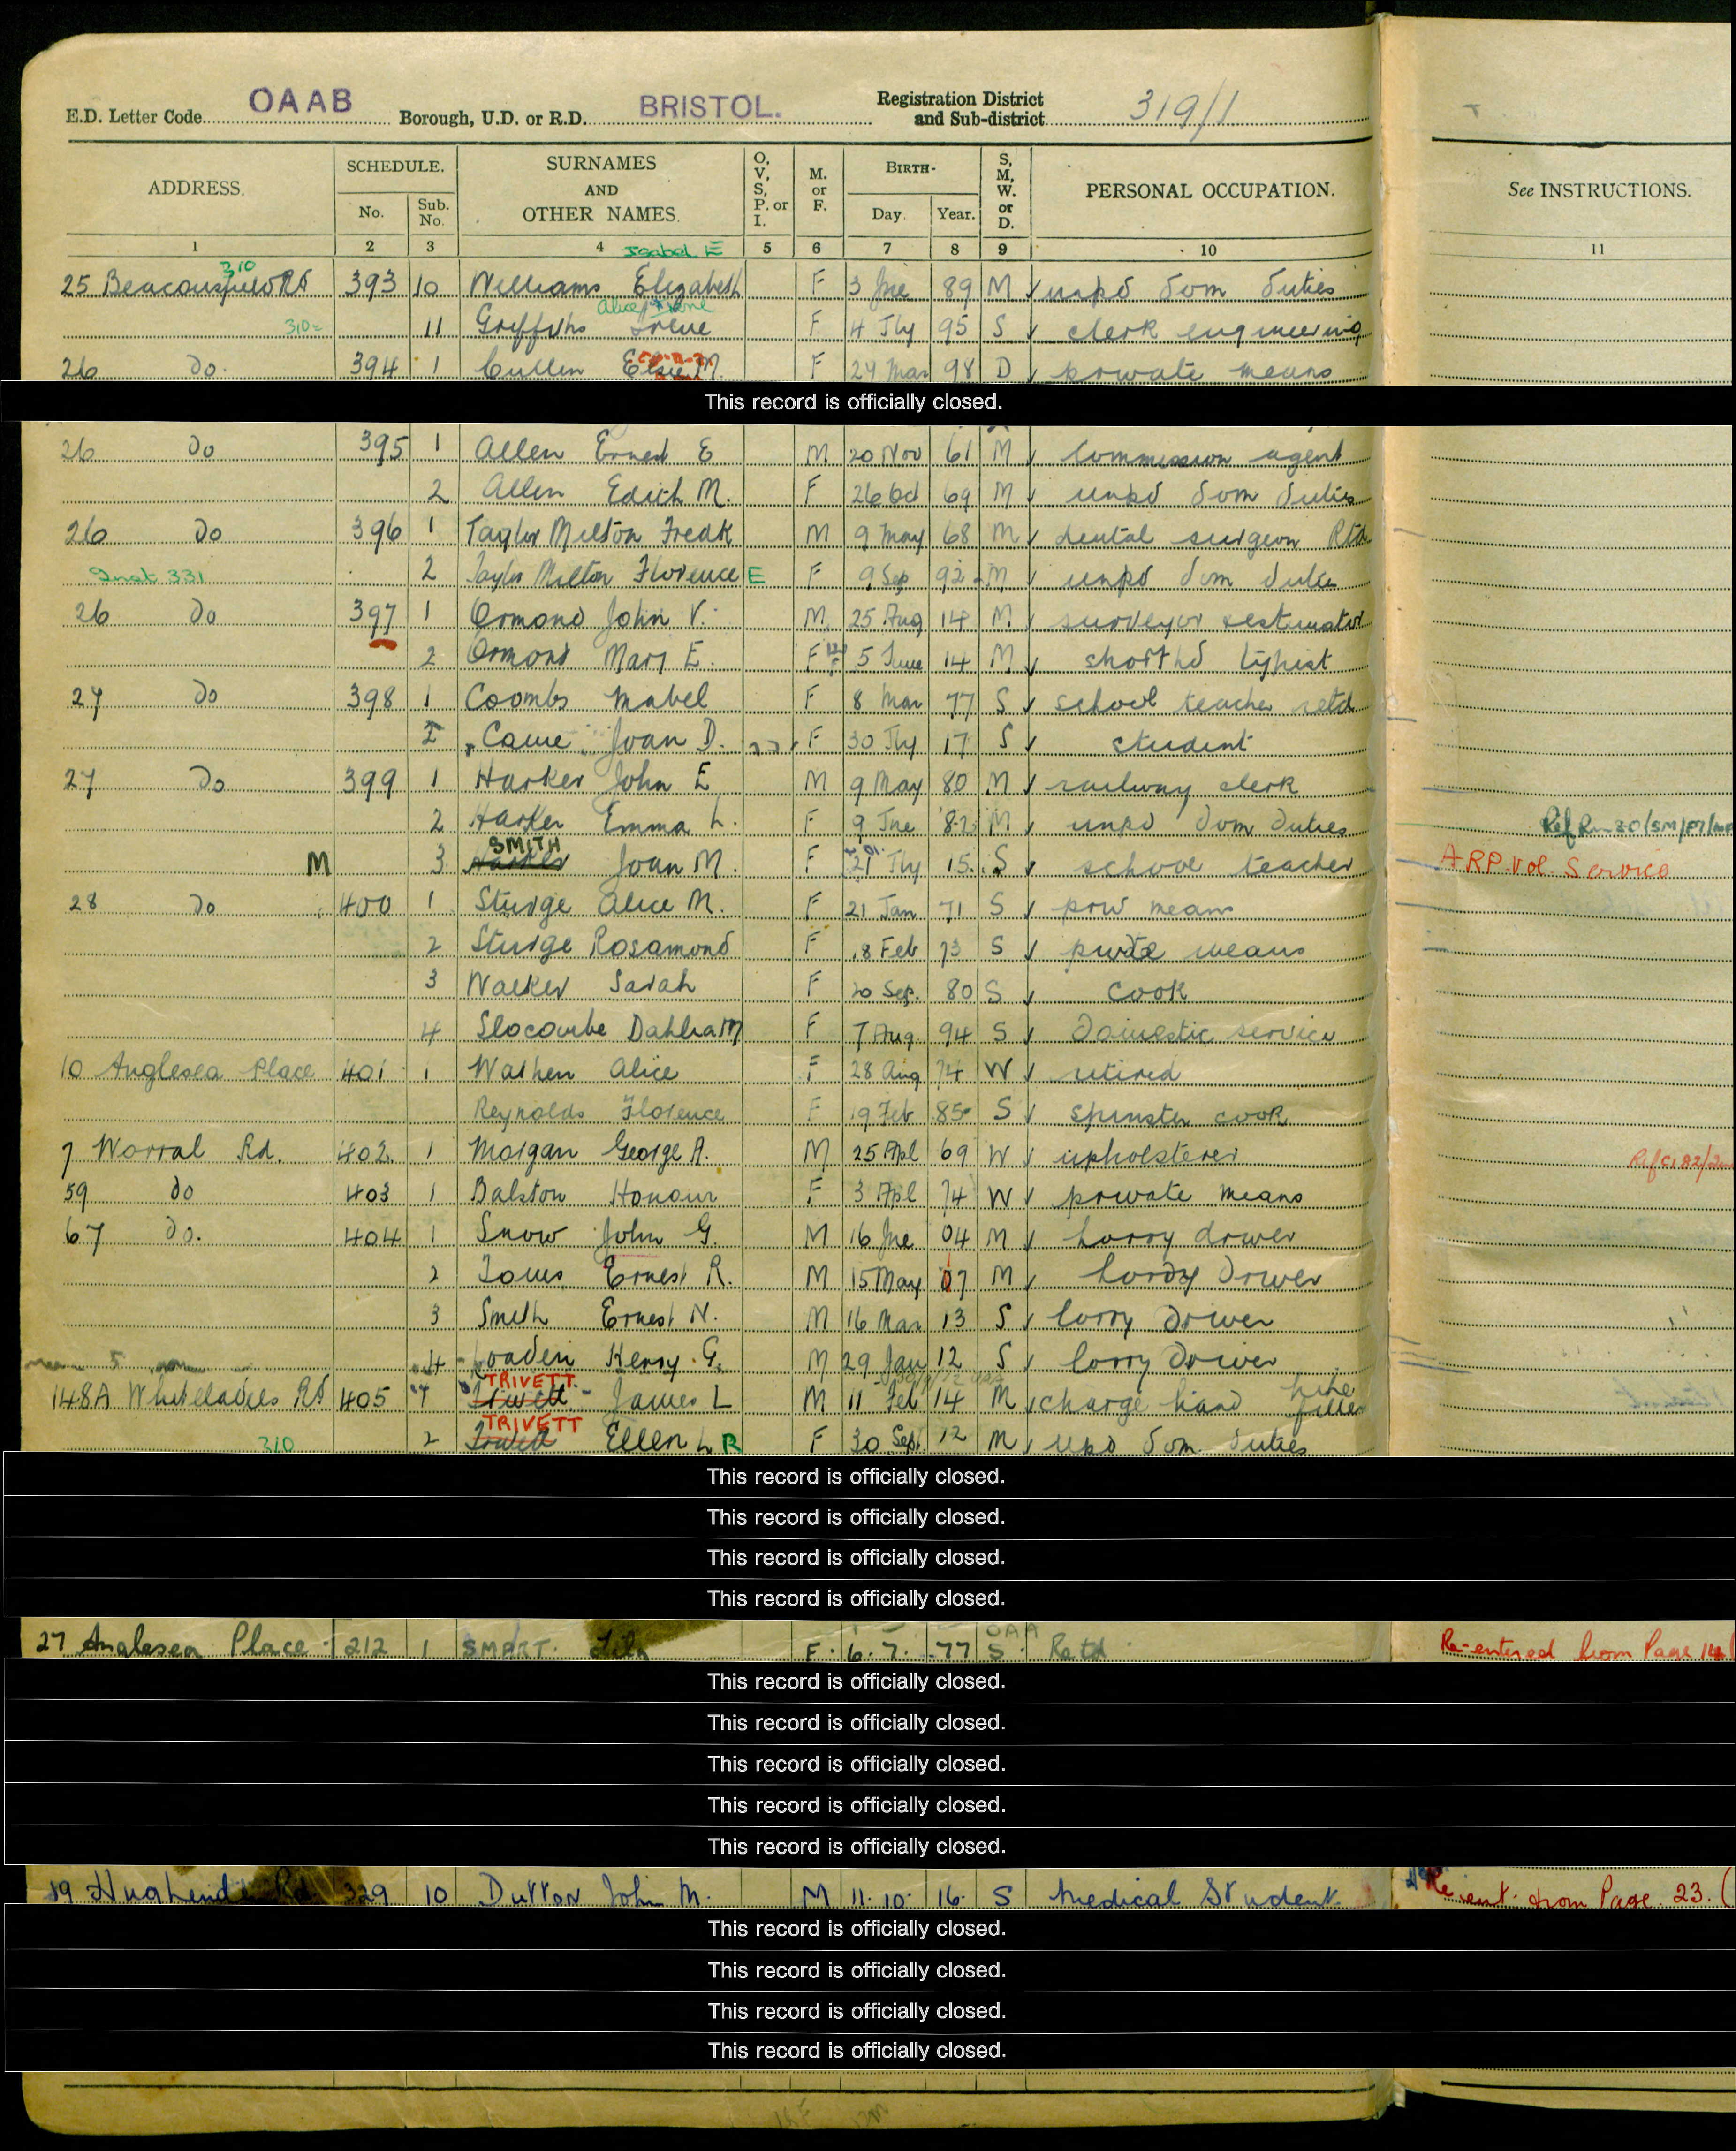 E.D. Letter Code OAAB Borough, U.D. or R.D. BRISTOL. Registration District and Sub-district 319/1
ADDRESS. SCHEDULE. No. Sub. No. SURNAMES AND OTHER NAMES. O, V, S, P. or I. M. or F. BIRTH- Day. Year. S, M, W. or D. PERSONAL OCCUPATION. See INSTRUCTIONS.
1 2 3 4 5 6 7 8 9 10 11
Isabel E
310
25 Beaconsfield Rd 393 10 Williams Elizabeth F 3 Jne 89 M unpd dom duties
Alice Irene
310 11 Griffiths Irene F 4 Jly 95 S clerk engineering
26 do. 394 1 Cullen Elsie M. F 24 Mar 98 D private means
This record is officially closed.
26 do 395 1 Allen Ernest E M 20 Nov 61 M Commission agent
2 Allen Edith M. F 26 Oct 69 M unpd dom duties
26 do 396 1 Taylor Milton Fredk M 9 May 68 M dental surgeon Rtd
Inst 331 2 Taylor Milton Florence E F 9 Sep 92 M unpd dom dutie
26 do 397 1 Ormond John V. M 25 Aug 14 M surveyor estimator
2 Ormond Mary E. F 5 June 14 M shorthd typist
27 do 398 1 Coombs Mabel F 8 Mar 77 S school teacher retd
2 Joan D. F 30 Jly 17 S student
27 do 399 1 Harker John E M 9 May 80 M railway clerk
2 Harker Emma L. F 9 Jne 82 M unpd dom duties
SMITH
M 3 Harker Joan M. F 21 Jly 15 S school teacher ARP. Vol. Service
28 do 400 1 Sturge Alice M. F 21 Jan 71 S priv means
2 Sturge Rosamond F 8 Feb 73 S means
3 Walker Sarah F 20 Sep. 80 S cook
4 Slocombe Dahlia M F 7 Aug 94 S Domestic service
10 Anglesea Place 401 1 Wathen Alice F 28 Aug 74 W retired
Reynolds Florence F 19 Feb 85 S spinster cook
7 Worral Rd. 402 1 Morgan George A. M 25 Apl 69 W upholsterer
59 do 403 1 Balston Honour F 3 Apl 74 W private means
67 do. 404 1 Snow John G. M 16 Jne 04 M Lorry driver
2 Ernest R. M 15 May 07 M Lorry Driver
3 Smith Ernest N. M 16 Mar 13 S lorry Driver
4 Loaden Henry G. M 29 Jan 12 S lorry Driver
TRIVETT
148A Whiteladies Rd 405 1 James L M 11 Feb 14 M charge hand
TRIVETT
310 2 Ellen L R F 30 Sept 12 M unpd dom. duties
This record is officially closed.
This record is officially closed.
This record is officially closed.
This record is officially closed.
27 Anglesea Place 212 1 SMART. F. 6. 7. 77 S Retd Re-entered from Page 14
This record is officially closed.
This record is officially closed.
This record is officially closed.
This record is officially closed.
This record is officially closed.
19 Hughenden Rd 329 10 Dutton John M. M 11. 10. 16. S Medical Student from Page 23.
This record is officially closed.
This record is officially closed.
This record is officially closed.
This record is officially closed.